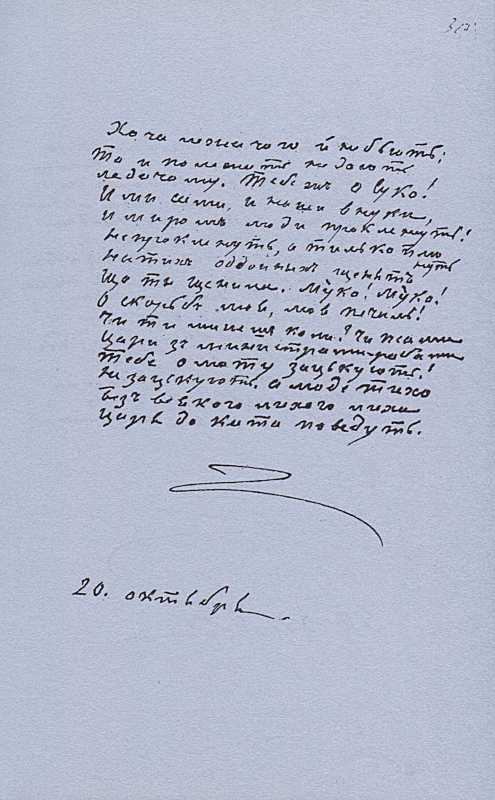 Хоча лежачого й небьють;
То и полежать не дають
ледачому. Тебежъ о суко!
И ми сами, и наши внуки,
И миромъ люди прокленуть!
непрокленуть, а тилько плю
нуть
на тихъ оддоиныхъ щенятъ
Що ты щенила. Муко! Муко!
О скорбь моя, моя печаль!
Чи ти минешъ коли? Чи псами
Цари зъ министрами-рабами
Тебе о люту зацькують!
не зацькують. а люде тихо
безъ всякого лихого лиха
Царя до ката поведуть.
20. октября.